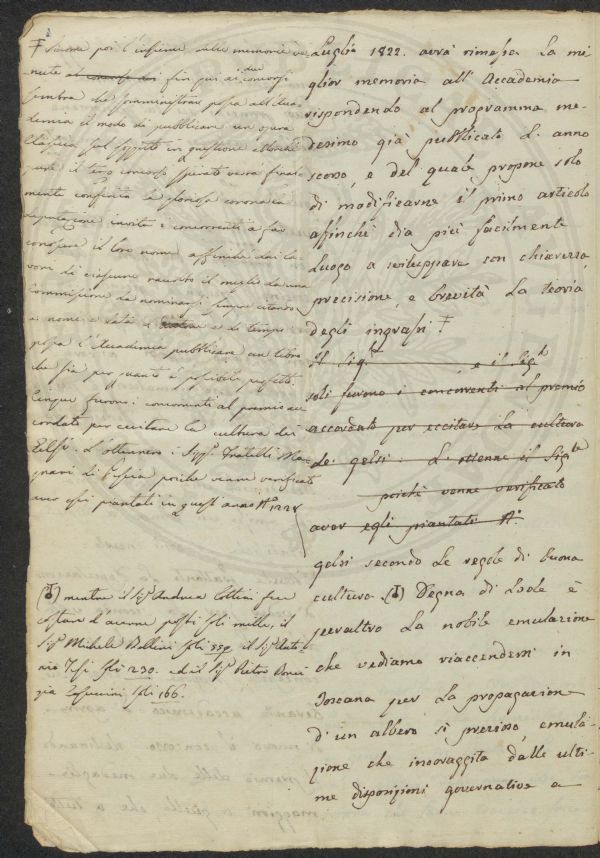 Luglio 1822. avrà rimessa La mi
glior memoria all'Accademia
rispondendo al programma me-
desimo già pubblicato L'anno
scorso, e del quale propone solo
di modificarne il primo articolo
affinché dia più facilmente
Luogo a sviluppare con chiarezza
precisione, e brevità La teoria
degli ingrassi. ‡
Il Sig.r e il Sig.r
soli furono i concorrenti al premio
accordato per eccitare La cultura
de' gelsi. L'ottenne il Sig.re
poiché venne verificato
aver egli piantati N.o
gelsi secondo Le regole di buona
cultura. (‡) Degna di Lode è
peraltro La nobile emulazione
che vediamo riaccendersi in
Toscana per La propagazione
d'un albero sì prezioso, emula-
zione che incoraggita dalle ulti-
me disposizioni governative a
‡ poi l'insieme sulle memorie ve
nute al concorso fin qui ai due concorsi
sembra che somministrar possa all'Acca
demia il modo di pubblicare un opera
classica sul soggetto in questione
il terzo concorso verrà final
mente conferita la gloriosa corona la
deputazione invita i concorrenti a far
conoscere il loro nome affinché dai la-
vori di ciascuno raccolto il meglio da una
Commissione da nominarsi sempre citando
il nome e data e tempo
possa l'Accademia pubblicare un libro
che sia per quanto è possibile perfetto.
Cinque furono i concorrenti al premio ac
cordato per eccitare la cultura dei
Gelsi. L'ottennero i Sigg.i Fratelli Ma
gnani di Pescia poiché venne verificato
aver essi piantati in quest'anno N.o 1228
(‡) mentre il Sig.r Andrea fece
costare d'averne posti soli mille, il
Sig.r Michele Bellini soli 339, il Sig.r Anto
nio Tosi soli 230. ed il Sig.r Pietro
soli 166.